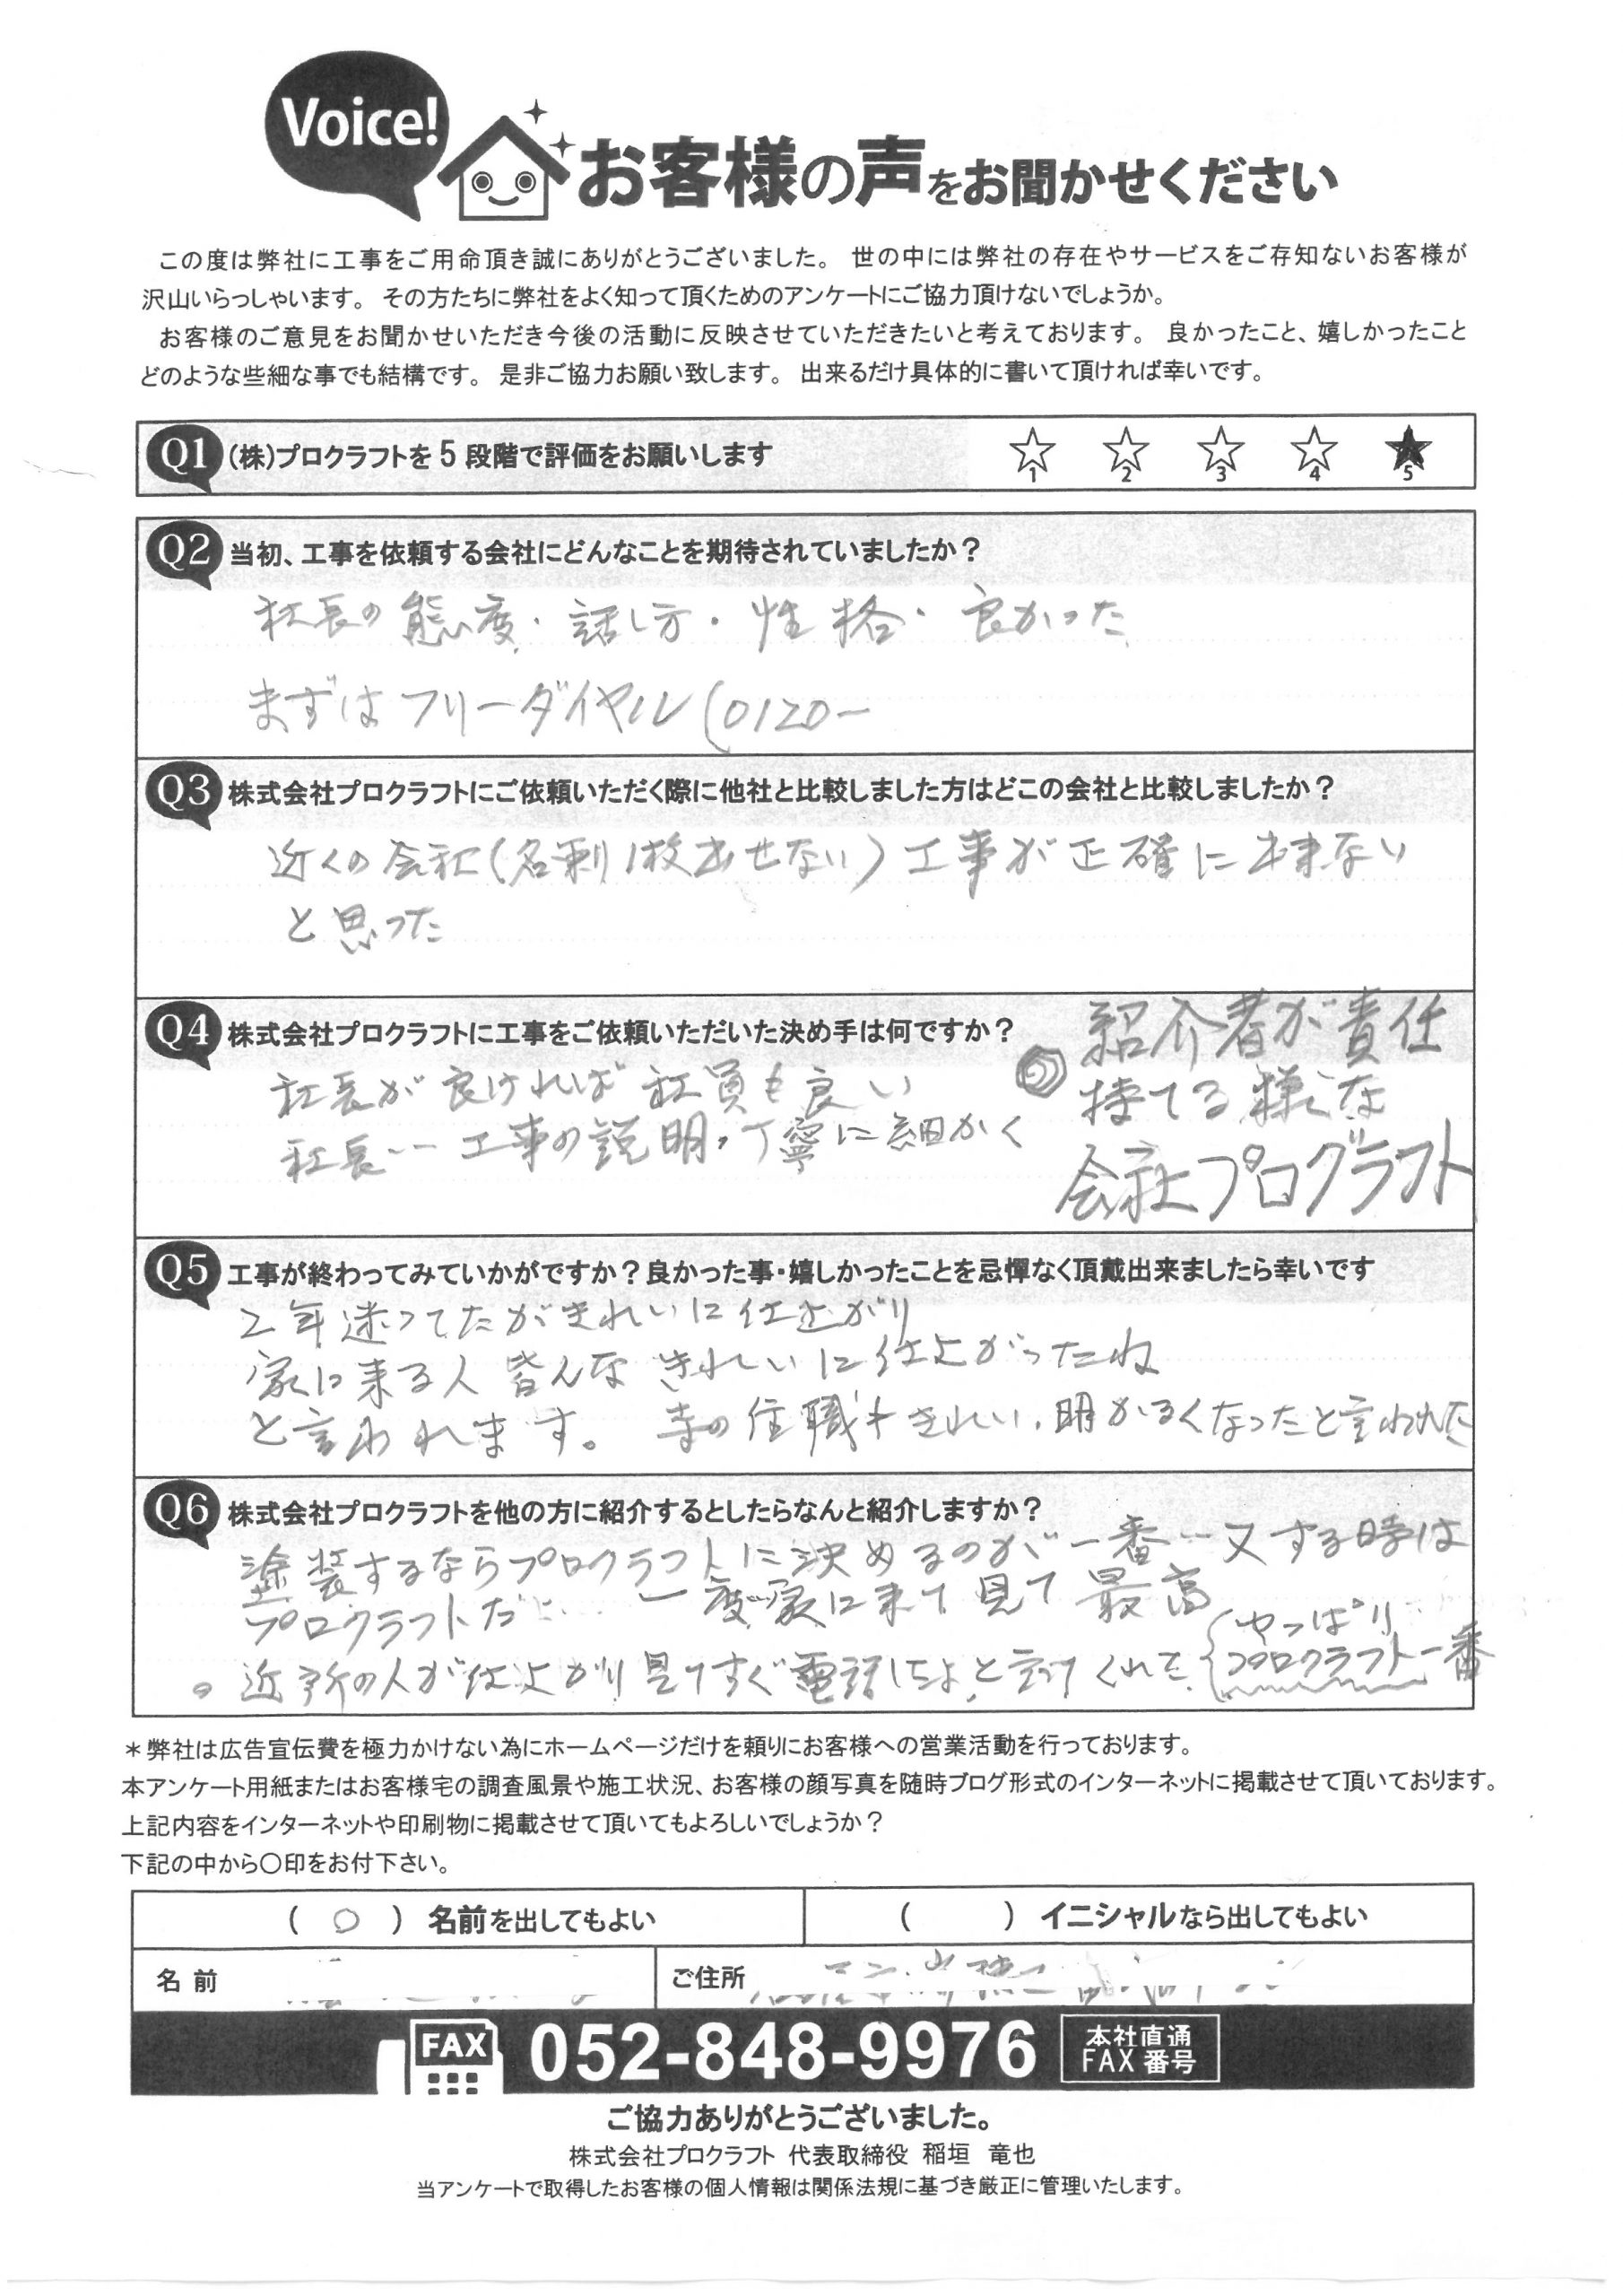 Voice!
お客様の声をお聞かせください
この度は弊社に工事をご用命頂き誠にありがとうございました。 世の中には弊社の存在やサービスをご存知ないお客様が
沢山いらっしゃいます。 その方たちに弊社をよく知って頂くためのアンケートにご協力頂けないでしょうか。
お客様のご意見をお聞かせいただき今後の活動に反映させていただきたいと考えております。 良かったこと、嬉しかったこと
どのような些細な事でも結構です。 是非ご協力お願い致します。 出来るだけ具体的に書いて頂ければ幸いです。
Q1 (株)プロクラフトを 5 段階で評価をお願いします ☆1 ☆2 ☆3 ☆4 ★5
Q2 当初、工事を依頼する会社にどんなことを期待されていましたか？
社長の態度・話し方・性格・良かった
まずはフリーダイヤル(0120-
Q3 株式会社プロクラフトにご依頼いただく際に他社と比較しました方はどこの会社と比較しましたか？
近くの会社(名刺1枚出せない)工事が正確に出来ない
と思った
Q4 株式会社プロクラフトに工事をご依頼いただいた決め手は何ですか？
社長が良ければ社員も良い
社長… 工事の説明、丁寧に細かく
◎ 紹介者が責任
持てる様な
会社プログラフト
Q5 工事が終わってみていかがですか？良かった事・嬉しかったことを忌憚なく頂戴出来ましたら幸いです
2年迷ってたがきれいに仕上がり
家に来る人皆んなきれいに仕上がったね
と言われます。 寺の住職もきれい、明かるくなったと言われた
Q6 株式会社プロクラフトを他の方に紹介するとしたらなんと紹介しますか？
塗装するならプロクラフトに決めるのが一番…又する時は
プロクラフトだ… 一度家に来て見て最高
。近所の人が仕上がり見てすぐ電話したよと言ってくれた
やっぱり
プロクラフト一番
＊弊社は広告宣伝費を極力かけない為にホームページだけを頼りにお客様への営業活動を行っております。
本アンケート用紙またはお客様宅の調査風景や施工状況、お客様の顔写真を随時ブログ形式のインターネットに掲載させて頂いております。
上記内容をインターネットや印刷物に掲載させて頂いてもよろしいでしょうか？
下記の中から〇印をお付下さい。
( ○ ) 名前を出してもよい
( ) イニシャルなら出してもよい
名 前
ご住所
FAX 052-848-9976 本社直通
FAX 番号
ご協力ありがとうございました。
株式会社プロクラフト 代表取締役 稲垣 竜也
当アンケートで取得したお客様の個人情報は関係法規に基づき厳正に管理いたします。